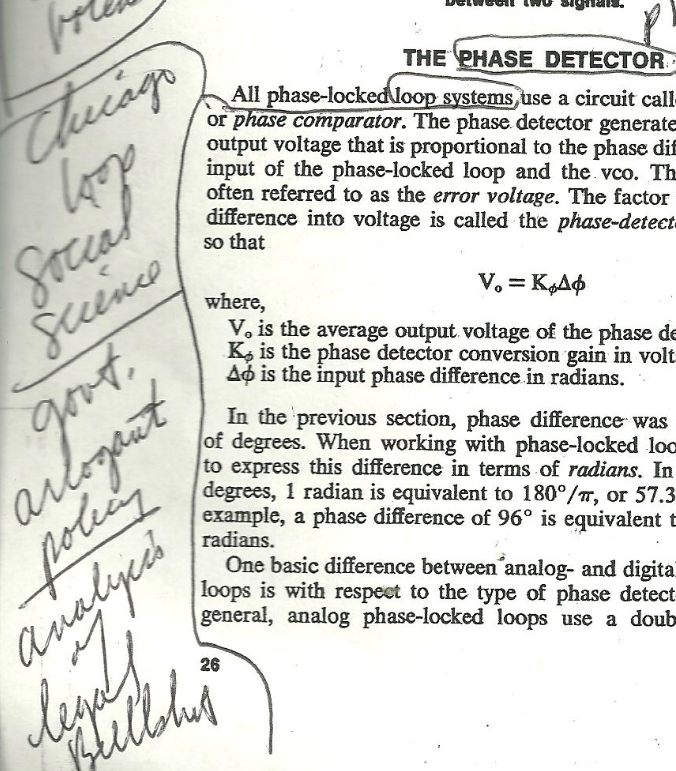 between two signals.
THE PHASE DETECTOR
All phase-locked loop systems use a circuit call
or phase comparator. The phase detector generate
output voltage that is proportional to the phase dif
input of the phase-locked loop and the vco. Th
often referred to as the error voltage. The factor
difference into voltage is called the phase-detect
so that
V₀ = KϕΔϕ
where,
V₀ is the average output voltage of the phase de
Kϕ is the phase detector conversion gain in volt
Δϕ is the input phase difference in radians.
In the previous section, phase difference was
of degrees. When working with phase-locked loo
to express this difference in terms of radians. In
degrees, 1 radian is equivalent to 180°/π, or 57.3
example, a phase difference of 96° is equivalent t
radians.
One basic difference between analog- and digita
loops is with respect to the type of phase detect
general, analog phase-locked loops use a doub
26
Chicago
loop
social
science
govt.
arrogant
policy
analysis
of
legal
Bullshit